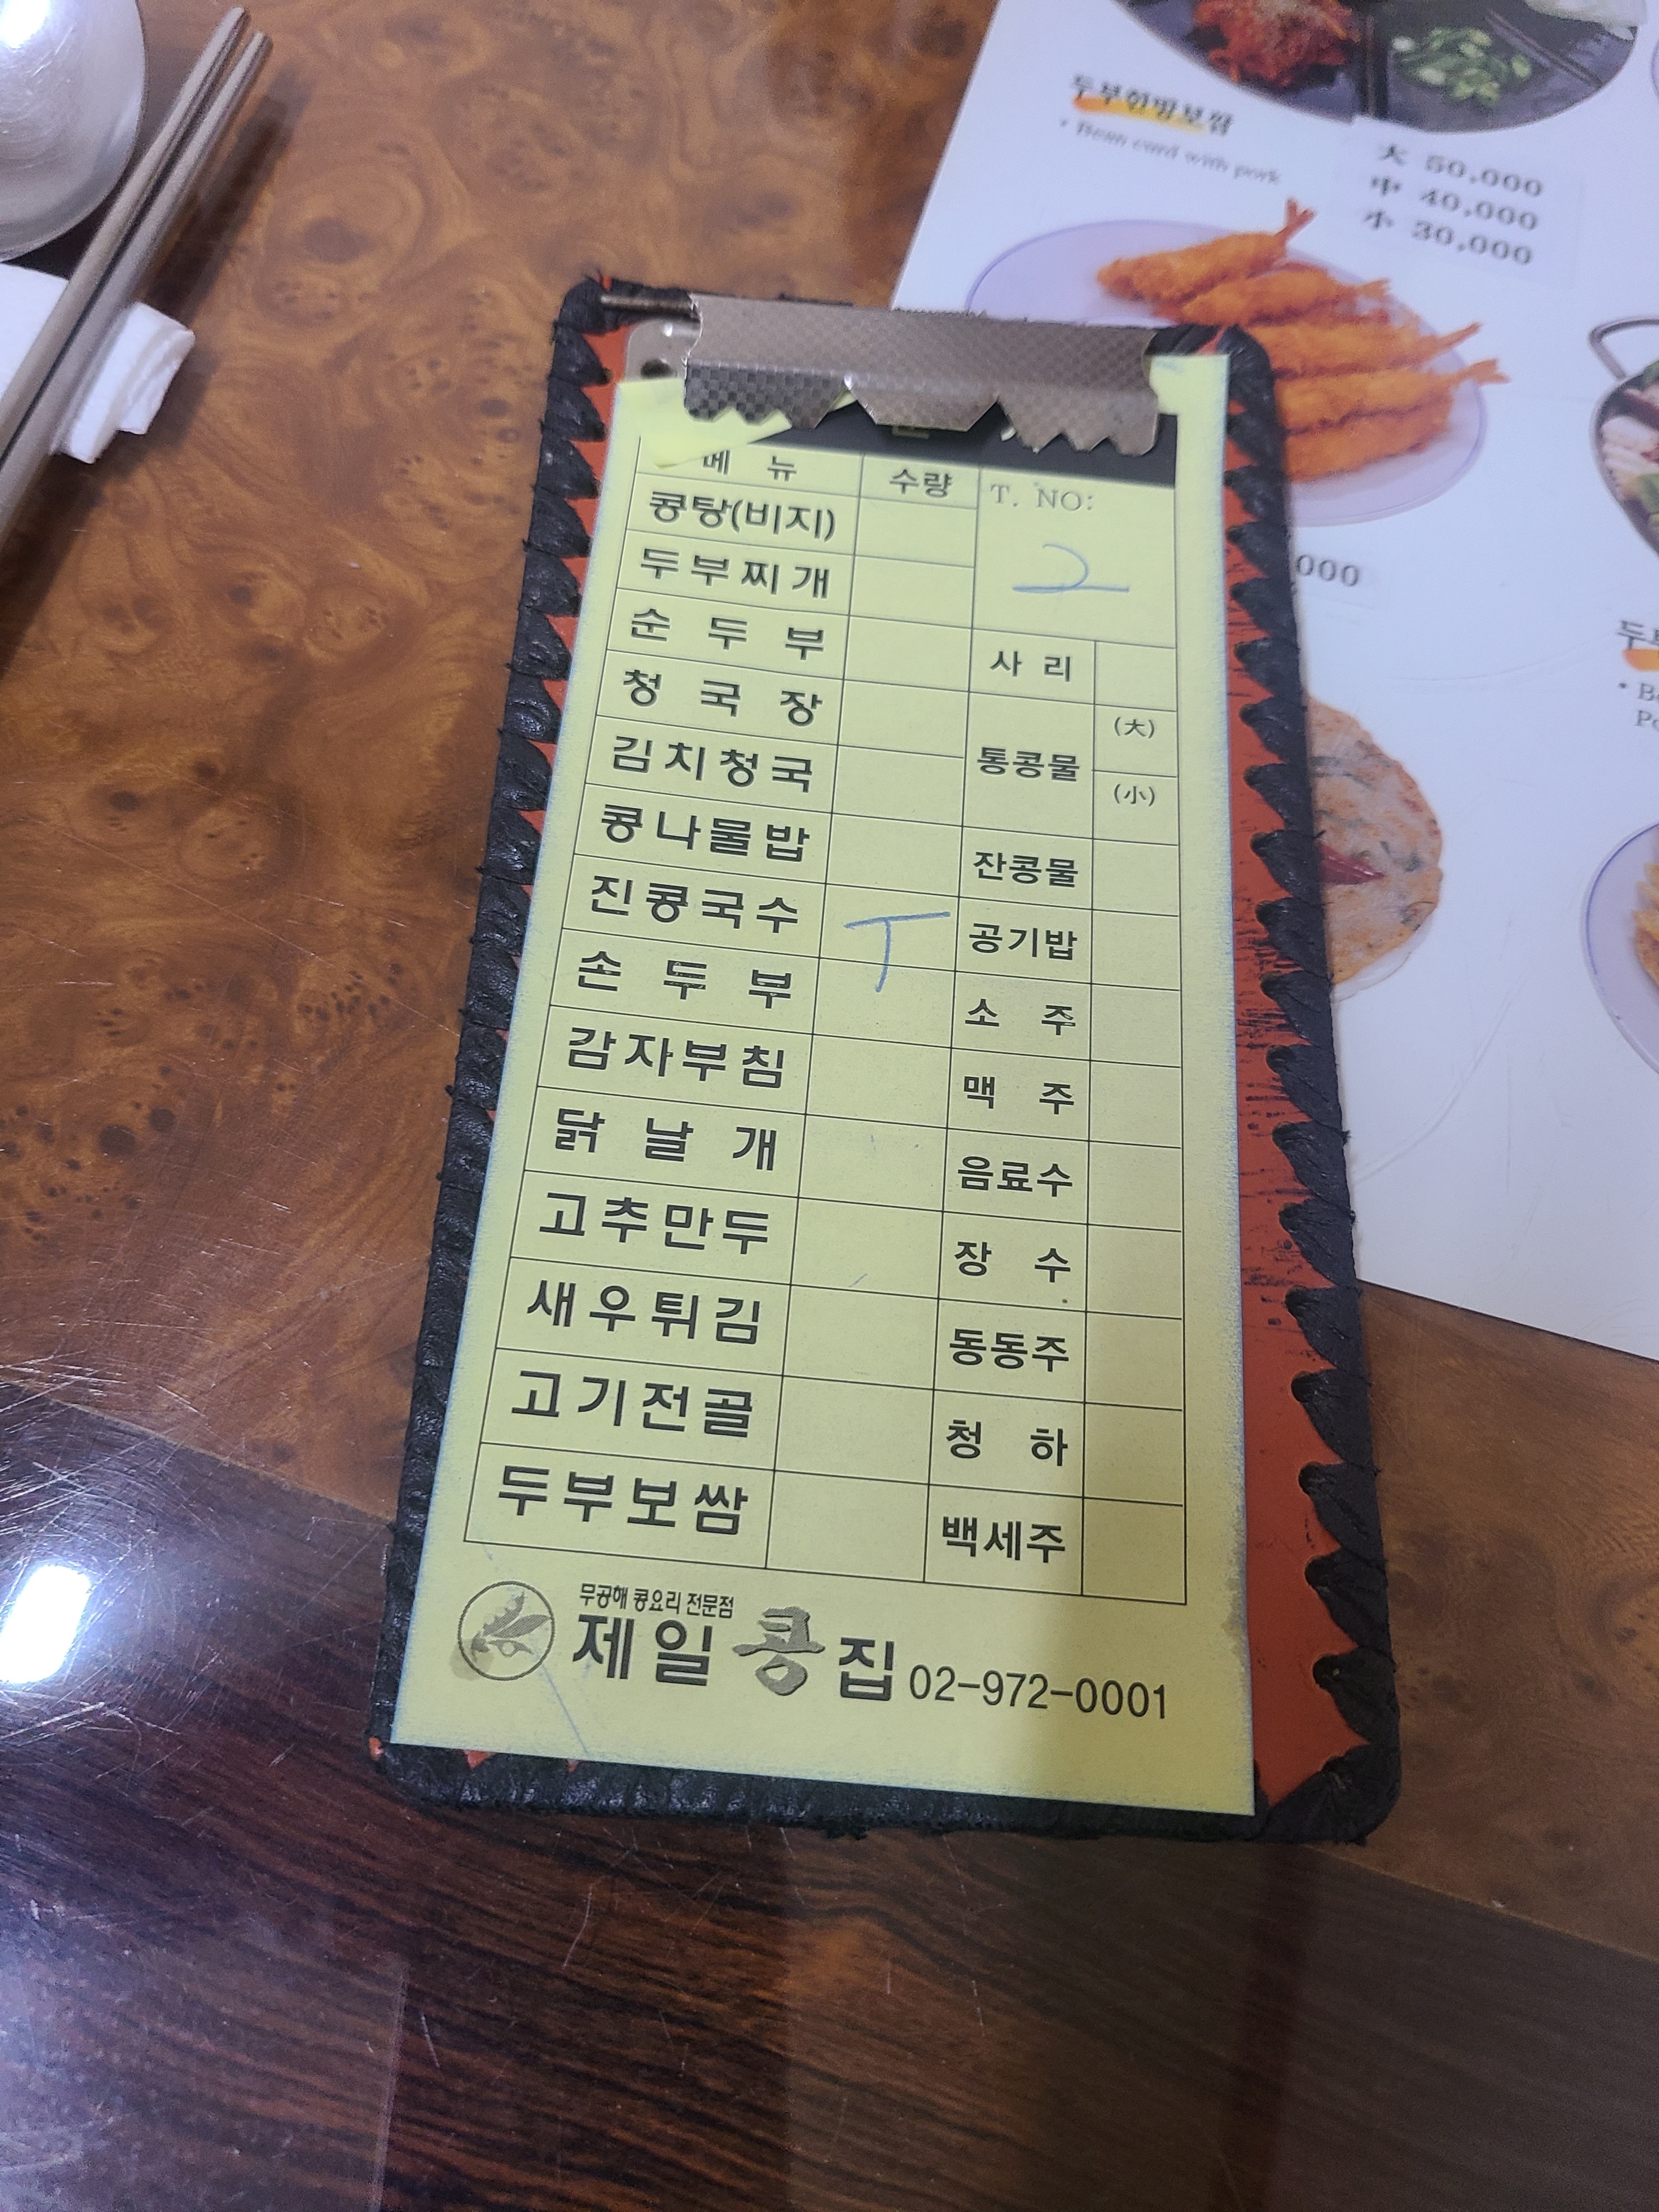 두부한방보쌈
• Bean curd with pork
大 50,000
中 40,000
小 30,000
000
메 뉴
수량
T. NO:
2
콩탕(비지)
두부찌개
순 두 부
사 리
청 국 장
통콩물
(大)
(小)
김치청국
콩나물밥
잔콩물
진콩국수
T
공기밥
손 두 부
소 주
감자부침
맥 주
닭 날 개
음료수
고추만두
장 수
새우튀김
동동주
고기전골
청 하
두부보쌈
백세주
무공해 콩요리 전문점
제일콩집 02-972-0001